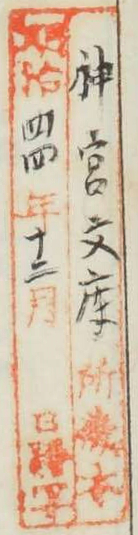 神宮文庫所蔵本
明治四四年十二月日謄写